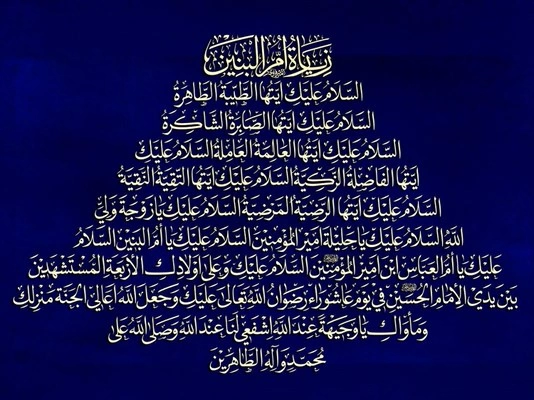 زِيَارَةُ أُمِّ الْبَنِيْنَ
السَّلَامُ عَلَيْكِ اَيَّتُهَا الطَّيِّبَةُ الطَّاهِرَةُ
السَّلَامُ عَلَيْكِ اَيَّتُهَا الصَّابِرَةُ الشَّاكِرَةُ
السَّلَامُ عَلَيْكِ اَيَّتُهَا الْعَالِمَةُ الْعَامِلَةُ السَّلَامُ عَلَيْكِ
اَيَّتُهَا الْفَاضِلَةُ الزَّكِيَّةُ السَّلَامُ عَلَيْكِ اَيَّتُهَا التَّقِيَّةُ النَّقِيَّةُ
السَّلَامُ عَلَيْكِ اَيَّتُهَا الرَّضِيَّةُ الْمَرْضِيَّةُ السَّلَامُ عَلَيْكِ يَا زَوْجَةَ وَلِيِّ
اللهِ السَّلَامُ عَلَيْكِ يَا حَلِيْلَةَ اَمِيْرِ الْمُؤْمِنِيْنَ السَّلَامُ عَلَيْكِ يَا اُمَّ الْبَنِيْنَ السَّلَامُ
عَلَيْكِ يَا اُمَّ الْعَبَّاسِ ابْنِ اَمِيْرِ الْمُؤْمِنِيْنَ السَّلَامُ عَلَيْكِ وَعَلَى اَوْلَادِكِ الْاَرْبَعَةِ الْمُسْتَشْهَدِيْنَ
بَيْنَ يَدَيِ الْاِمَامِ الْحُسَيْنِ فِيْ يَوْمِ عَاشُوْرَاءَ رِضْوَانُ اللهِ تَعَالَى عَلَيْكِ وَجَعَلَ اللهُ اَعَالِيَ الْجَنَّةِ مَنْزِلَكِ
وَمَأْوَاكِ يَا وَجِيْهَةً عِنْدَ اللهِ اشْفَعِيْ لَنَا عِنْدَ اللهِ وَصَلَّى اللهُ عَلَى
مُحَمَّدٍ وَآلِهِ الطَّاهِرِيْنَ